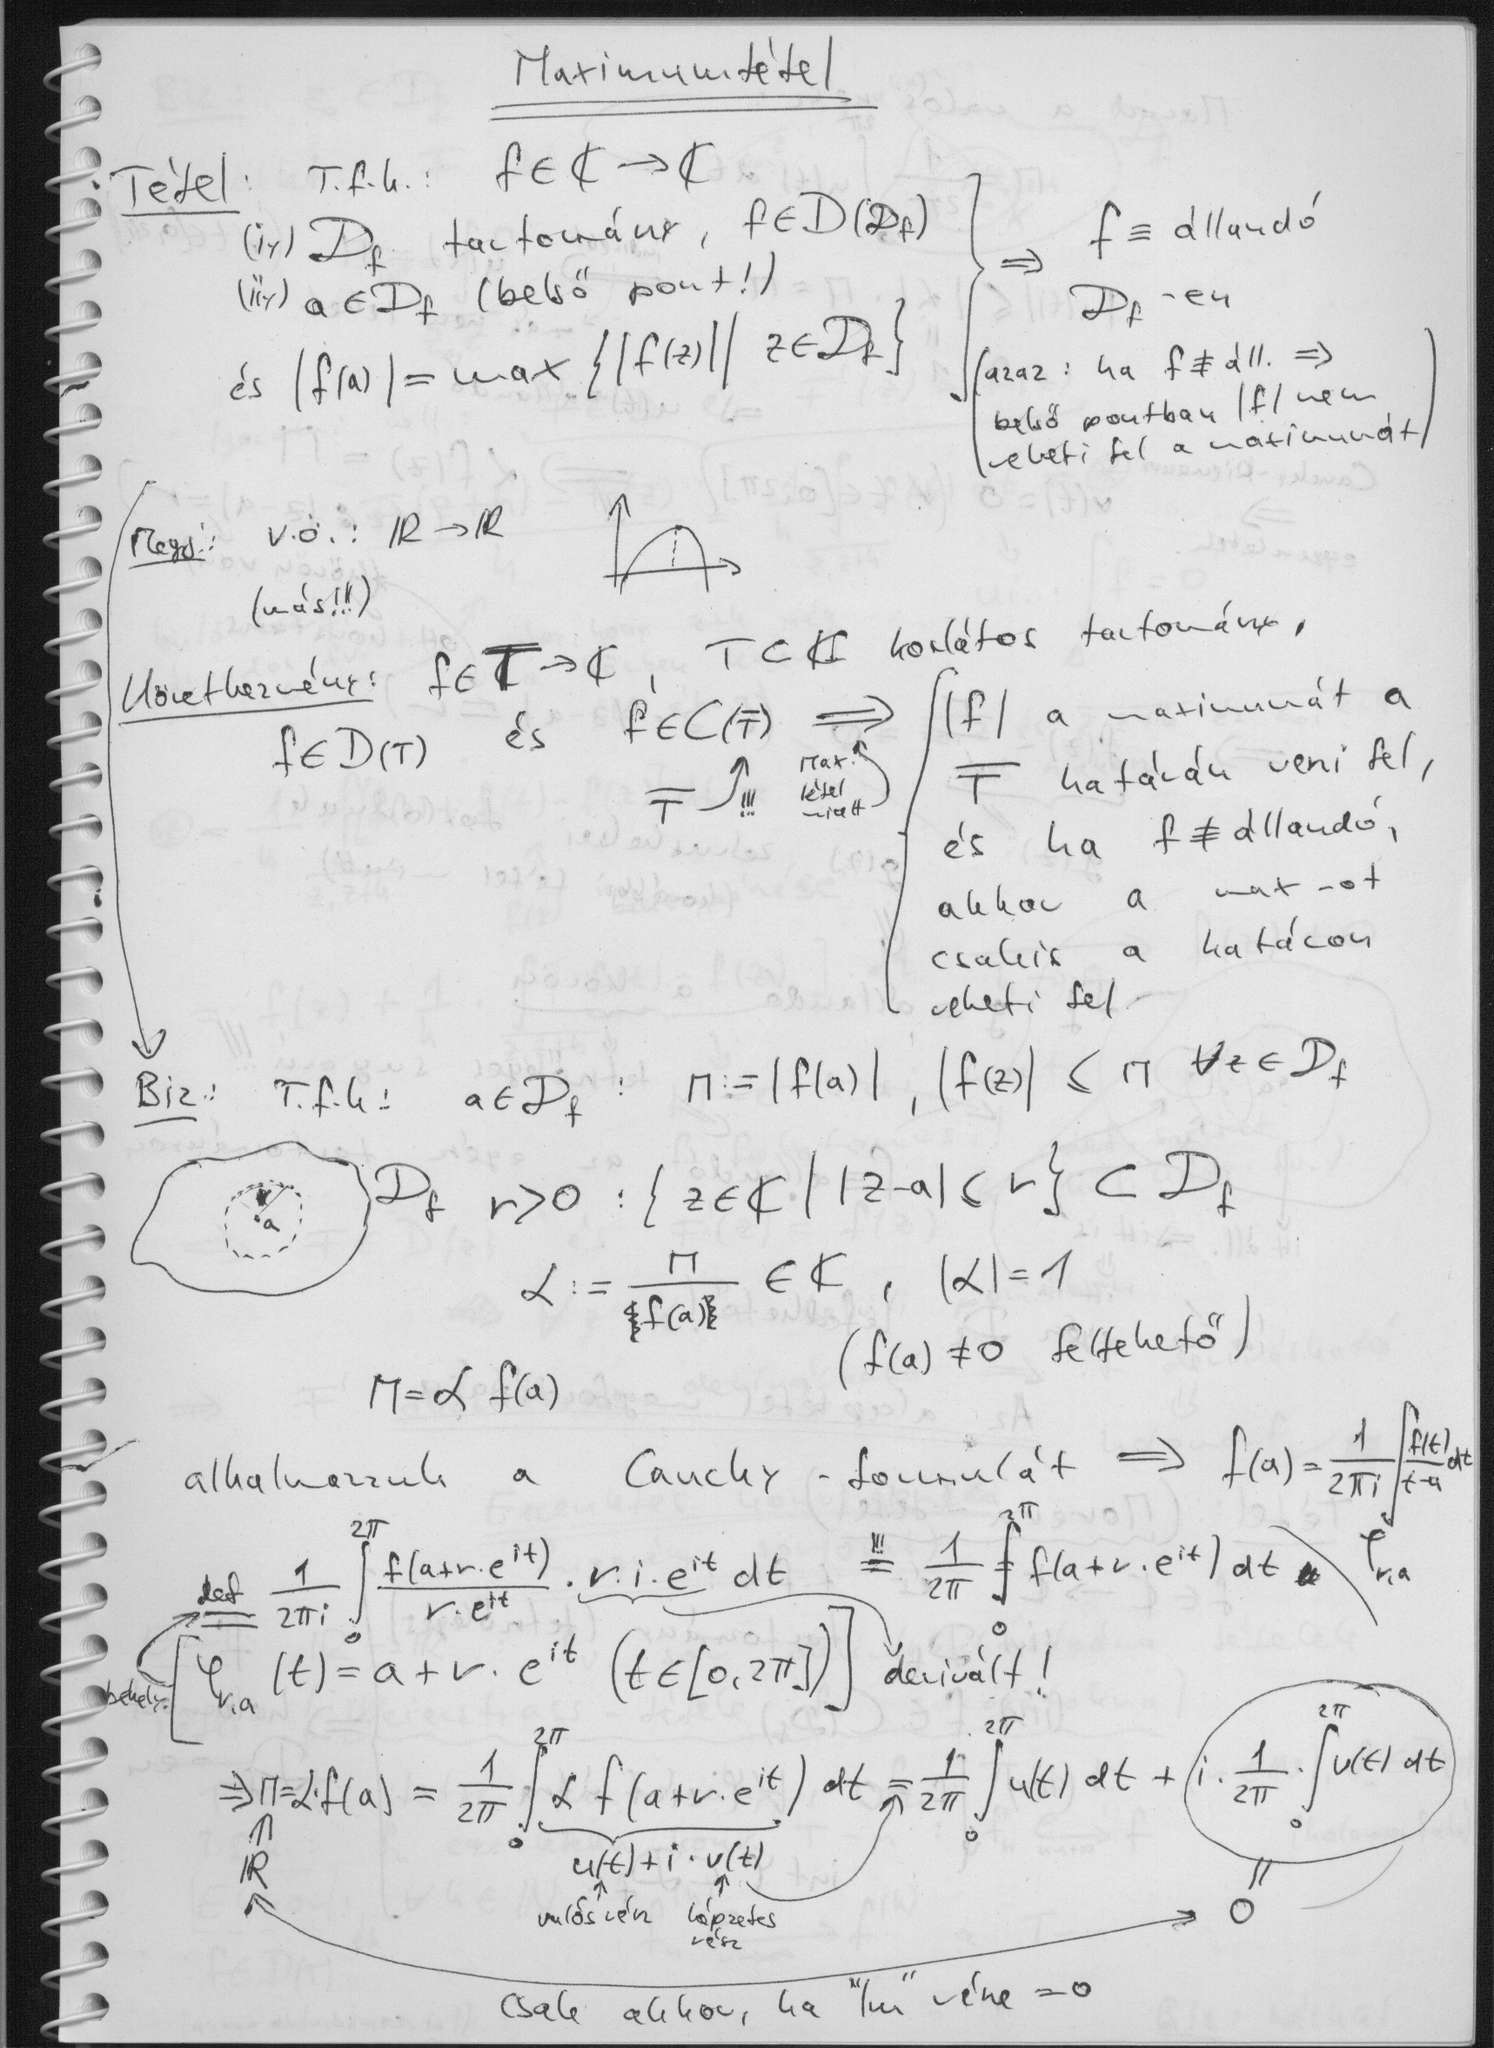 Maximumtétel
Tétel: T.f.h.: f∈ℂ→ℂ
(i) 𝒟_f tartomány, f∈D(𝒟_f)
(ii) a∈𝒟_f (belső pont!)
és |f(a)| = max {|f(z)| | z∈𝒟_f}
⇒ f ≡ állandó
𝒟_f -en
(azaz: ha f≢áll. ⇒
belső pontban |f| nem
veheti fel a maximumát)
Megj.: v.ö.: ℝ→ℝ
(más!!!)
Következmény: f∈T̅→ℂ, T⊂ℂ korlátos tartomány,
f∈D(T) és f∈C(T̅) ⇒
T̅ !!!
Max.
tétel
miatt
|f| a maximumát a
T̅ határán veszi fel,
és ha f≢állandó,
akkor a max-ot
csakis a határon
veheti fel
Biz.: T.f.h.: a∈𝒟_f : M:=|f(a)|, |f(z)| ≤ M ∀z∈𝒟_f
r
a
𝒟_f r>0 : {z∈ℂ | |z-a| ≤ r} ⊂ 𝒟_f
α := M/f(a) ∈ℂ, |α|=1
(f(a)≠0 feltehető)
M=α f(a)
alkalmazzuk a Cauchy-formulát ⇒ f(a) = 1/(2πi) ∫_{φ_{r,a}} f(t)/(t-a) dt
def = 1/(2πi) ∫_0^{2π} f(a+r·e^{it})/(r·e^{it}) · r·i·e^{it} dt =!!! 1/(2π) ∫_0^{2π} f(a+r·e^{it}) dt
behely. [φ_{r,a}(t) = a+r·e^{it} (t∈[0,2π])] derivált!
⇒ M=α·f(a) = 1/(2π) ∫_0^{2π} α f(a+r·e^{it}) dt = 1/(2π) ∫_0^{2π} u(t) dt + i·1/(2π)·∫_0^{2π} v(t) dt
u(t)+i·v(t)
ℝ
valós rész képzetes
rész
= 0
Csak akkor, ha "Im" része =0